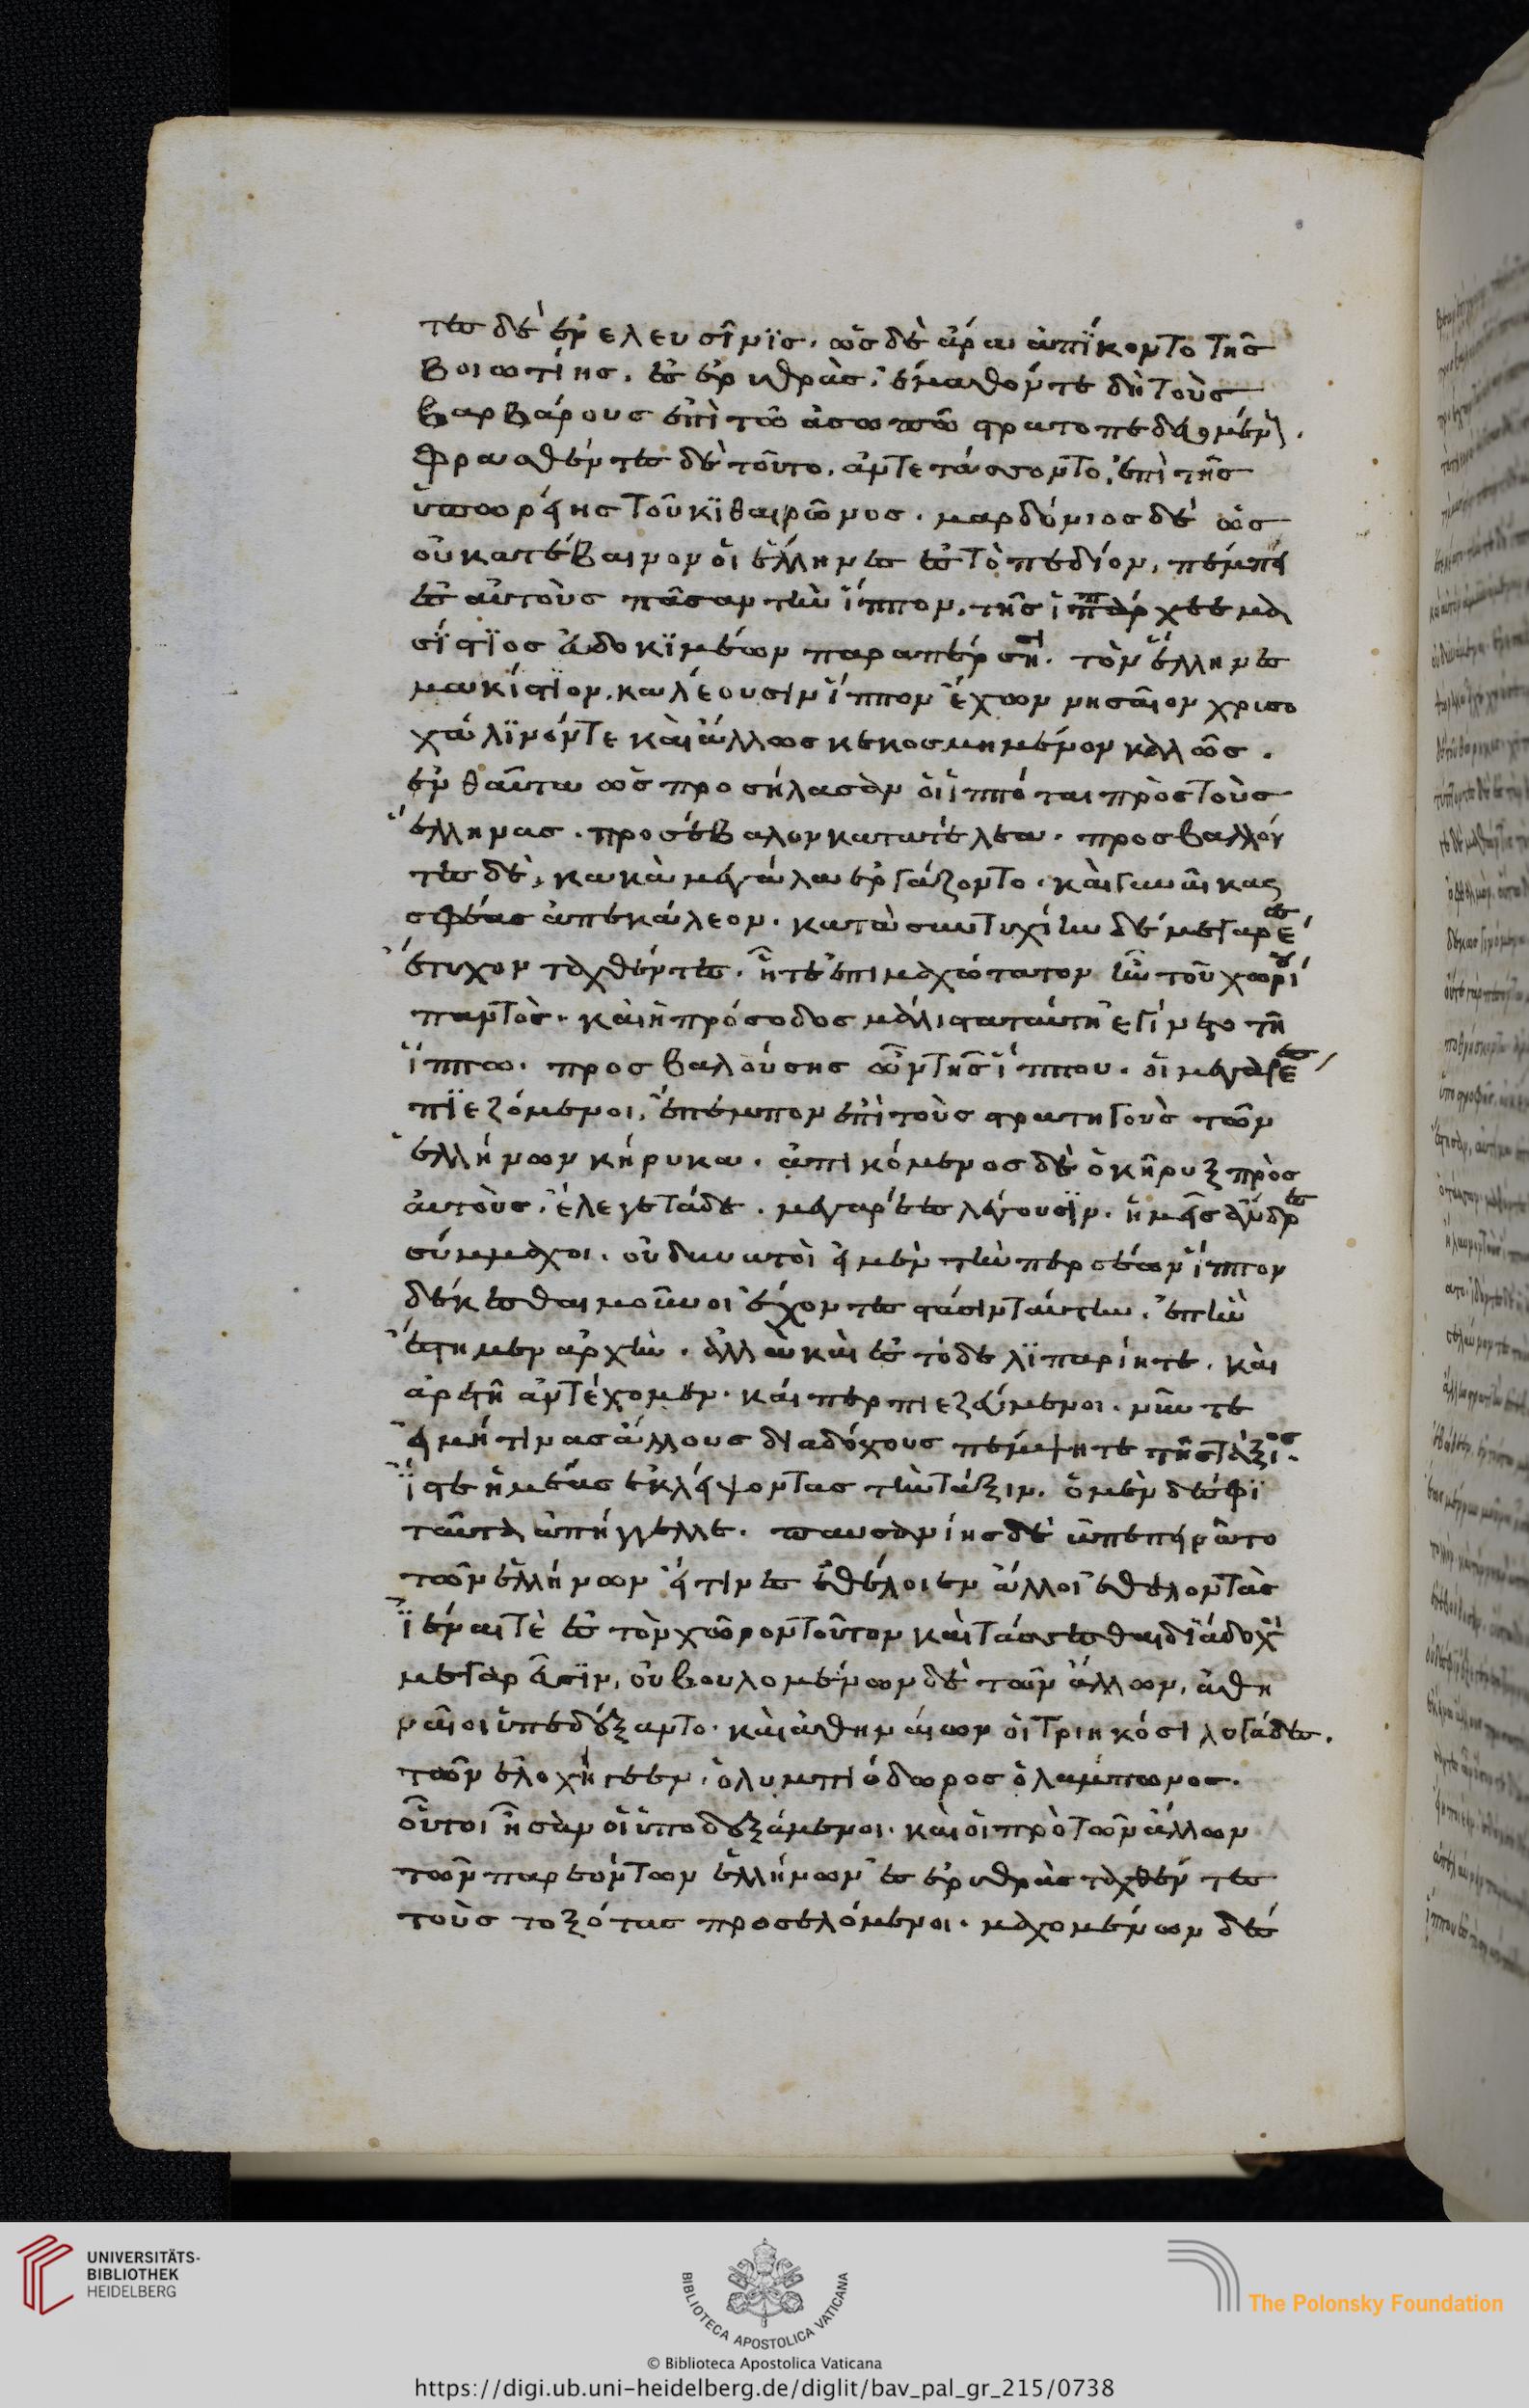 τες δὲ ἐν ελευσῖνϊ σ. ὡς δὲ ἄρα ἀπΐκοντο τῆς
βοιωτίης. ἐς ἐρυθρὰς, ἔμαθόν τε δὴ τοὺς
βαρβάρους ἐπὶ τῶ ἀσωπῶ στρατοπεδευομέν
φρασθέντες δὲ τοῦτο. ἀντετάσσοντο, ἐπὶ τῆς
ὑπωρέης τοῦ κϊθαιρῶνος. μαρδόνιος δέ ὡς
οὐ κατέβαινον οἱ ἕλληνες ἐς τὸ πεδίον, πέμπει
ἐς αὐτοὺς πᾶσαν τὴν ἵππον. τῆς ἱππάρχεε μα
σίστϊος εὐδοκϊμέων παρα πέρσησι. τὸν ἕλληνες
μακίστϊον. καλέουσιν ἵππον ἔχων νησαῖον χρυσο
χάλϊνόν τε καὶ ἄλλως κεκοσμημένον καλῶς.
ἐνθαῦτα ὡς προσήλασαν οἱ ἱππόται πρὸς τοὺς
ἕλληνας. προσέβαλον κατα τέλεα. προσβαλλόν
τες δὲ, κακὰ μεγάλα ἐργάζοντο. καὶ γυναῖκας
σφέας ἀπεκάλεον. κατὰ συντυχίην δέ μεγαρέες
ἔτυχον ταχθέντες. ἧ τε ἐπιμαχώτατον ἦν τοῦ χωρίου
παντὸς. καὶ ἡ πρόσοδος μάλιστα ταύτη ἐγίνετο τῆ
ἵππω. προσβαλούσης ὦν τῆς ἵππου. οἱ μεγαρέες
πϊεζόμενοι, ἔπεμπον ἐπὶ τοὺς στρατηγοὺς τῶν
ἑλλήνων κήρυκα. ἀπικόμενος δὲ ὁ κῆρυξ πρὸς
αὐτοὺς, ἔλεγε τάδε. μεγαρέες λέγουσϊν. ἡμεῖς ἄνδρες
σύμμαχοι. οὐ δυνατοὶ εἰμὲν τὴν περσέων ἵππον
δέκεσθαι μοῦνοι ἔχοντες στάσιν ταύτην. ἐπ ἣν
ἔστημεν ἀρχὴν. ἀλλὰ καὶ ἐς τόδε λϊπαρίη τε. καὶ
ἀρετῆ ἀντέχομεν. καίπερ πιεζεύμενοι. νῦν τε
εἰ μή τινας ἄλλους διαδόχους πέμψητε τῆς τάξιος.
ἴστε ἡμέας ἐκλείψοντας τὴν τάξιν. ὁ μὲν δέ σφϊ
ταῦτα ἀπήγγελλε. παυσανίης δὲ ἀπεπειρᾶτο
τῶν ἑλλήνων εἴ τινες ἐθέλοιεν ἄλλοι ἐθελονταὶ
ἰέναι τὲ ἐς τὸν χῶρον τοῦτον καὶ τάσσεσθαι διάδοχοι
μεγαρεῦσϊν, οὐ βουλομένων δὲ τῶν ἄλλων, ἀθη
ναῖοι ὑπεδέξαντο. καὶ ἀθηναίων οἱ τριηκόσι λογάδες.
τῶν ἐλοχήγεεν, ὀλυμπιόδωρος ὁ λάμπωνος.
οὗτοι ἦσαν οἱ ὑποδεξάμενοι. καὶ οἱ πρὸ τῶν ἄλλων
τῶν παρεόντων ἑλλήνων ἐς ἐρυθρὰς ταχθέντες
τοὺς τοξότας προσελόμενοι. μαχομένων δέ σ
UNIVERSITÄTS-
BIBLIOTHEK
HEIDELBERG
BIBLIOTECA APOSTOLICA VATICANA
The Polonsky Foundation
© Biblioteca Apostolica Vaticana
https://digi.ub.uni-heidelberg.de/diglit/bav_pal_gr_215/0738